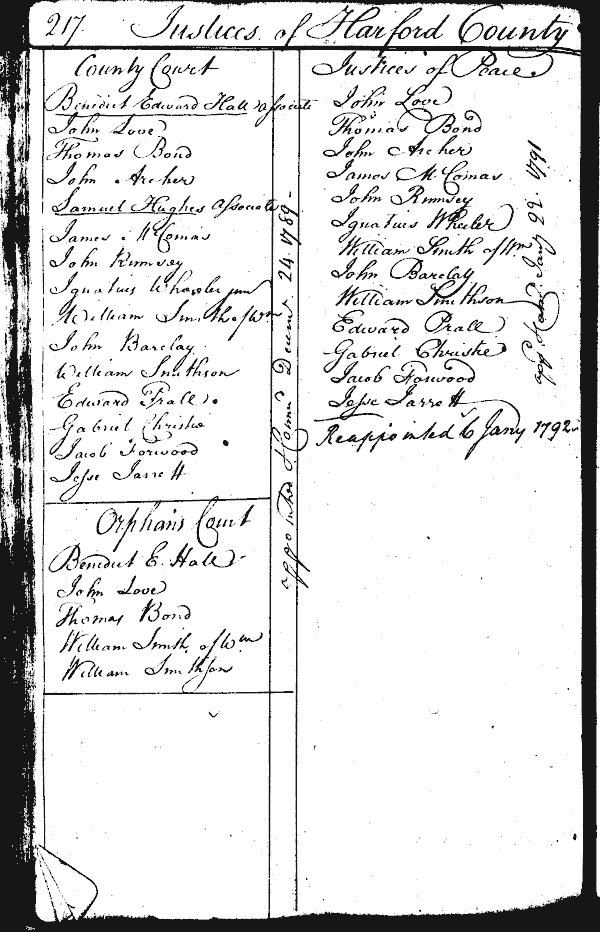 217. Justices of Harford County
County Court
Benedict Edward Hall associate
John Love
Thomas Bond
John Archer
Samuel Hughes associate
James McComas
John Rumsey
Ignatius Wheeler junr
William Smith of Wm
John Barclay
William Smithson
Edward Prall
Gabriel Christie
Jacob Forwood
Jesse Jarrett
appointed & Comd Decemr 24 1789
Orphans Court
Benedict E. Hall
John Love
Thomas Bond
William Smith of Wm
William Smithson
Justices of Peace
John Love
Thomas Bond
John Archer
James McComas
John Rumsey
Ignatius Wheeler
William Smith of Wm
John Barclay
William Smithson
Edward Prall
Gabriel Christie
Jacob Forwood
Jesse Jarrett
Reappointed 6 Jany 1792
app & Comd Jany 22. 1791